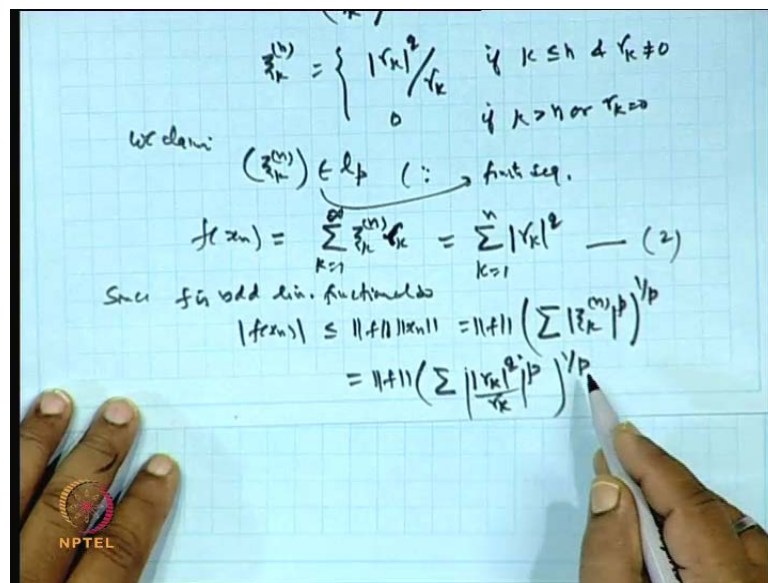 ξ_k^{(n)} = { |γ_k|^q / γ_k if k ≤ n & γ_k ≠ 0
0 if k > n or γ_k = 0
We claim
(ξ_k^{(n)}) ∈ l_p (∵ finit seq.
f(x_n) = ∑_{k=1}^{∞} ξ_k^{(n)} γ_k = ∑_{k=1}^{n} |γ_k|^q — (2)
Since f is bdd lin. functional so
|f(x_n)| ≤ ||f|| ||x_n|| = ||f|| (∑ |ξ_k^{(n)}|^p)^{1/p}
= ||f|| (∑ | |γ_k|^q / γ_k |^p)^{1/p}
NPTEL